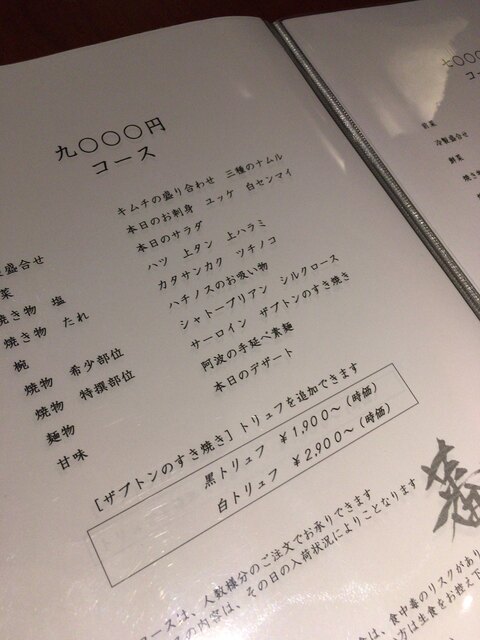 九〇〇〇円
コース
キムチの盛り合わせ 三種のナムル
盛合せ 本日のお刺身 ユッケ 白センマイ
菜 本日のサラダ
焼き物 塩 ハツ 上タン 上ハラミ
焼き物 たれ カタサンカク ツチノコ
椀 ハチノスのお吸い物
焼物 希少部位 シャトーブリアン シルクロース
焼物 特撰部位 サーロイン ザブトンのすき焼き
麺物 阿波の手延べ素麺
甘味 本日のデザート
[ザブトンのすき焼き]トリュフを追加できます
黒トリュフ ¥1,900〜(時価)
白トリュフ ¥2,900〜(時価)
コースは、人数様分のご注文でお承りできます
の内容は、その日の入荷状況によりことなります
は、食中毒のリスクがあり
方は生食をお控え下
七〇〇〇
コ
前菜
冷製盛合せ
副菜
焼き物